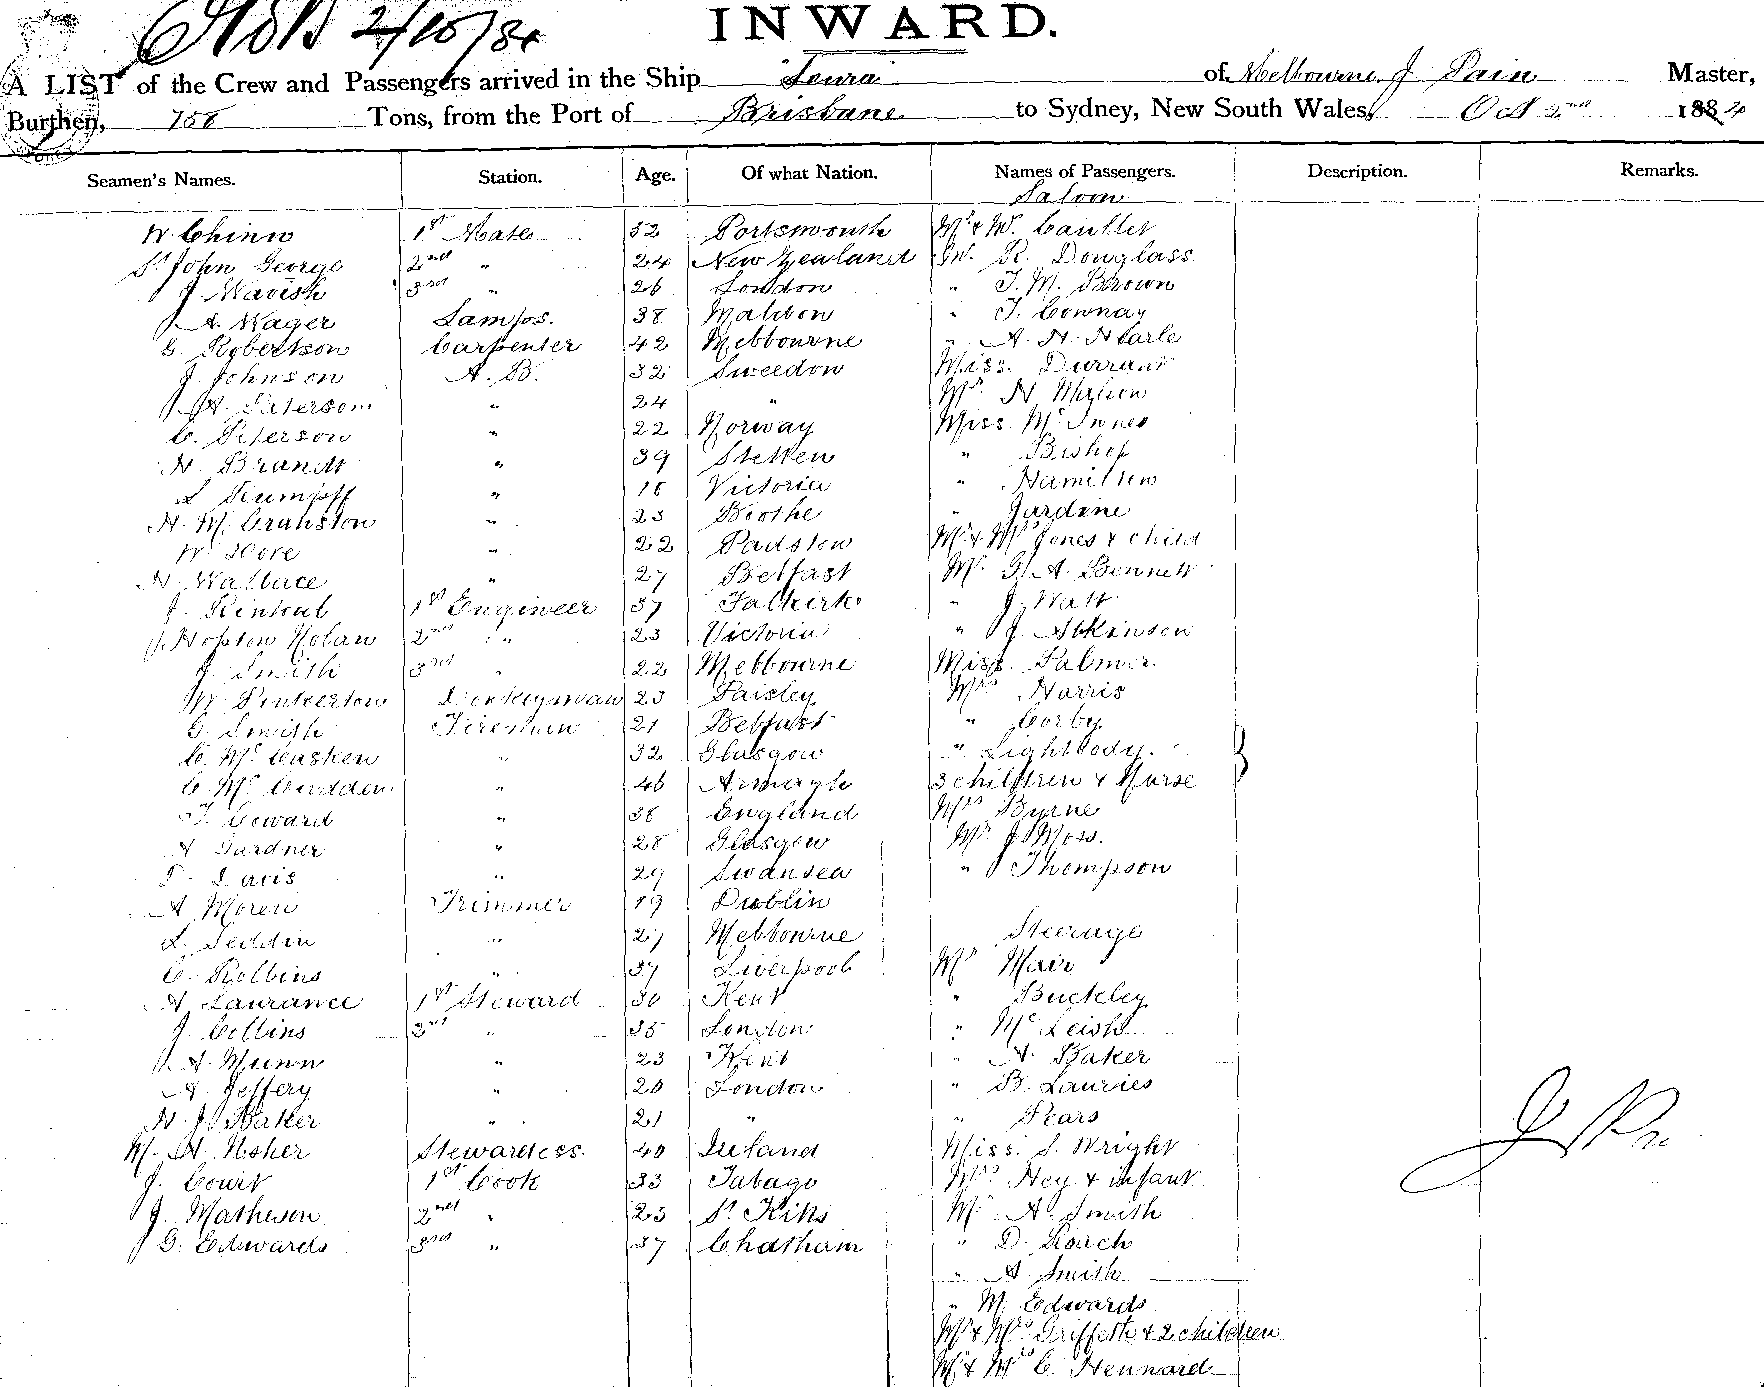 2/10/84
INWARD.
A LIST of the Crew and Passengers arrived in the Ship of Melbourne, J Pain Master,
Burthen, 758 Tons, from the Port of Brisbane to Sydney, New South Wales, Oct 2nd 1884
Seamen's Names. Station. Age. Of what Nation. Names of Passengers. Description. Remarks.
Saloon
W. Chinn 1st Mate 32 Portsmouth Mr & Mrs.
St John George 2nd " 24 New Zealand Mr. R. Douglass
J. Mavish 3rd " 26 London " J. M. Brown
J. A. Wager Lamps. 38 Maldon " J. Conway
G. Robertson Carpenter 42 Melbourne " A. H. Hearle
J. Johnson A. B. 32 Sweedon Miss. Durrant
J. A. Peterson " 24 " Mr. H.
C. Peterson " 22 Norway Miss. McInnes
H. Brandt " 39 Stetten " Bishop
L. Rumpff " 18 Victoria " Hamilton
H. M. Cranston " 23 Jardine
W. Hore " 22 Padstow Mr & Mrs Jones & child
H. Wallace " 27 Belfast Mr. G. A. Bennett
J. Rintoul 1st Engineer 37 Falkirk " J. Watt
J. Hopton Nolan 2nd " 23 Victoria " J. Atkinson
J. Smith 3rd " 22 Melbourne Miss. Palmer
W. Pinkerton Donkeyman 23 Paisley Mrs Harris
G. Smith Fireman 21 Belfast " Corby
C. McCasken " 32 Glasgow " Lightbody.
C. McCrudden " 46 Armagh 3 children & Nurse
T. Coward " 38 England Mrs Byrne
A Gardner " 28 Glasgow Mr. J. Moss.
Davis " 29 Swansea " Thompson
A. Moren Trimmer 19 Dublin
L. Seddin " 27 Melbourne Steerage
C. Rollins " 37 Liverpool Mr Mair
A. Laurance 1st Steward 30 Kent " Buckley
J. Collins 2nd " 35 London " McLeish
J. A. Munn " 23 Kent " A. Baker
A. Jeffery " 20 London " B. Lauries
H. J. Baker " 21 " " Pears
M. A. Noher Stewardess. 40 Ireland Miss. S. Wright
J. Court 1st Cook 33 Tabago Mrs Hey & infant
J. Matheson 2nd " 23 St. Kitts Mr. A. Smith
J. G. Edwards 3rd " 37 Chatham " D. Roach
" A. Smith
" M. Edwards
Mr & Mrs Griffeth & 2 children
Mr & Mrs C. Hennard